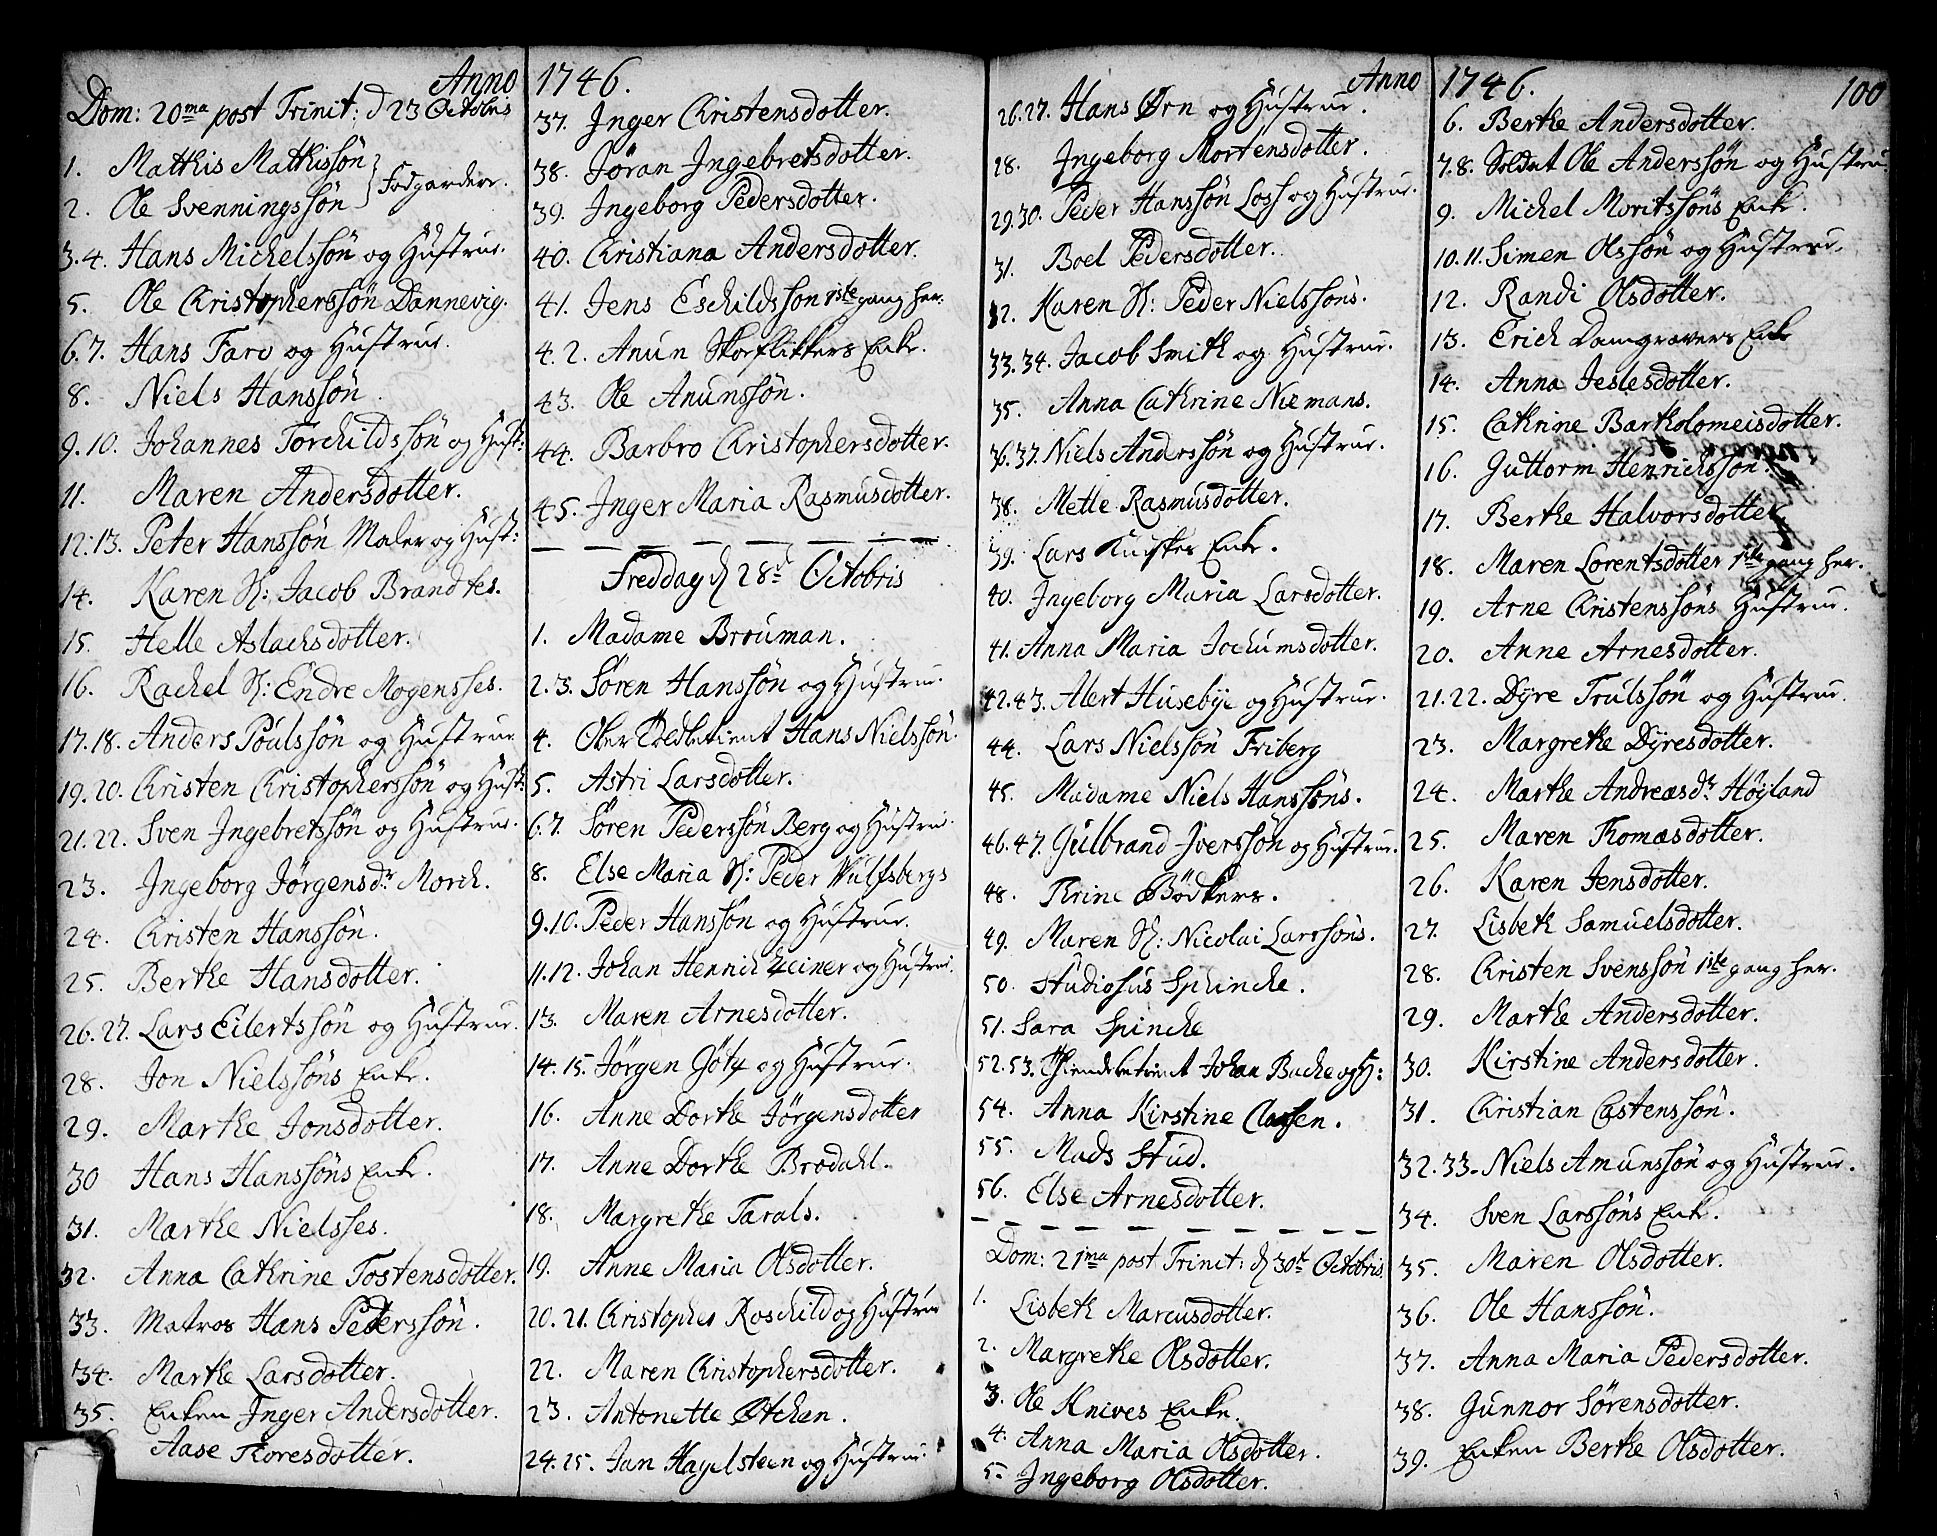 Anno
Dom: 20ma post Trinit: d 23 Octobris
1. Mathis Mathissön
2. Ole Svenningssön } Fodgarder.
3.4. Hans Michelssön og Hustrue.
5. Ole Christopherssön Dannevig.
6.7. Hans Faro og Hustrue.
8. Niels Hanssön.
9.10. Johannes Torchildssön og Hust:
11. Maren Andersdotter.
12.13. Peter Hanssön Maler og Hust:
14. Karen H: Jacob Brandtes.
15. Helle Aslachsdotter.
16. Rachel H: Endre Mogensses.
17.18. Anders Poulssön og Hustrue
19.20. Christen Christopherssön og Hust:
21.22. Sven Ingebretssön og Hustrue.
23. Ingeborg Jörgensdr Morch.
24. Christen Hanssön.
25. Berthe Hansdotter.
26.27. Lars Eilertssön og Hustrue.
28. Jon Nielssöns Enke.
29. Marthe Jonsdotter.
30 Hans Hanssöns Enke.
31. Marthe Nielsses.
32. Anna Cathrine Tostensdotter.
33. Matros Hans Pederssön.
34. Marthe Larsdotter.
35. Enken Inger Andersdotter.
Aase Thoresdotter.
1746.
37. Inger Christensdotter.
38. Jöran Ingebretsdotter.
39. Ingeborg Pedersdotter.
40. Christiana Andersdotter.
41. Jens Eschildssön 1ste gang her.
42. Anun Skorflikkers Enke.
43. Ole Anunssön.
44. Barbro Christophersdotter.
45. Inger Maria Rasmusdotter.
Freddag d 28d Octobris
1. Madame Brouman.
2.3. Sören Hanssön og Hustrue.
4. Hans Nielssön.
5. Astri Larsdotter.
6.7. Sören Pederssön Berg og Hustrue.
8. Else Maria H: Peder Wulfsbergs
9.10. Peder Hanssön og Hustrue.
11.12. Johan Henrich Zeiner og Hustrue.
13. Maren Arnesdotter.
14.15. Jörgen Götz og Hustrue.
16. Anne Dorthe Jörgensdotter
17. Anne Dorthe Brodahl.
18. Margrethe Tarals.
19. Anne Maria Olsdotter.
20.21. Christopher Roschild og Hustrue
22. Maren Christophersdotter.
23. Antonette Otchen.
24.25. Jan Hagelsteen og Hustrue.
Anno
26.27. Hans Ørn og Hustrue.
28. Ingeborg Mortensdotter.
29.30. Peder Hanssön Loss og Hustrue.
31. Boel Pedersdotter.
32. Karen H: Peder Nielssöns.
33.34. Jacob Smith og Hustrue.
35. Anna Cathrine Niemans.
36.37. Niels Anderssön og Hustrue.
38. Mette Rasmusdotter.
39. Lars Enke.
40. Ingeborg Maria Larsdotter.
41. Anna Maria Jochumsdotter.
42.43. Alert Husebye og Hustrue.
44. Lars Nielssön Friberg
45. Madame Niels Hanssöns.
46.47. Gulbrand Iverssön og Hustrue.
48. Thrine Bödkers.
49. Maren H: Nicolai Larssöns.
50. Studiosus Spincke.
51. Sara Spincke
52.53. Johan Buche og H:
54. Anna Kirstine Clasen.
55. Mads Stud.
56. Else Arnesdotter.
Dom: 21ma post Trinit: d 30t Octobris.
1. Lisbeth Marcusdotter.
2. Margrethe Olsdotter.
3. Ole Knives Enke.
4. Anna Maria Olsdotter.
5. Ingeborg Olsdotter.
1746. 100
6. Berthe Andersdotter.
7.8. Soldat Ole Anderssön og Hustrue.
9. Michel Moritssöns Enke.
10.11. Simen Olssön og Hustrue.
12. Randi Olsdotter.
13. Erich Damgravers Enke
14. Anna Jeslesdotter.
15. Cathrine Bartholomeisdotter.
16. Guttorm Henrichssön.
17. Berthe Halvorsdotter
18. Maren Lorentsdotter 1ste gang her.
19. Arne Christenssöns Hustrue.
20. Anne Arnesdotter.
21.22. Dyre Trulssön og Hustrue.
23. Margrethe Dyresdotter.
24. Marthe Andreasdr Höyland
25. Maren Thomasdotter.
26. Karen Jensdotter.
27. Lisbeth Samuelsdotter.
28. Christen Svenssön 1ste gang her.
29. Marthe Andersdotter.
30. Kirstine Andersdotter.
31. Christian Castenssön.
32.33. Niels Amunssön og Hustrue.
34. Sven Larssöns Enk.
35. Maren Olsdotter.
36. Ole Hanssön.
37. Anna Maria Pedersdotter.
38. Gunnor Sörensdotter.
39. Enken Berthe Olsdotter.